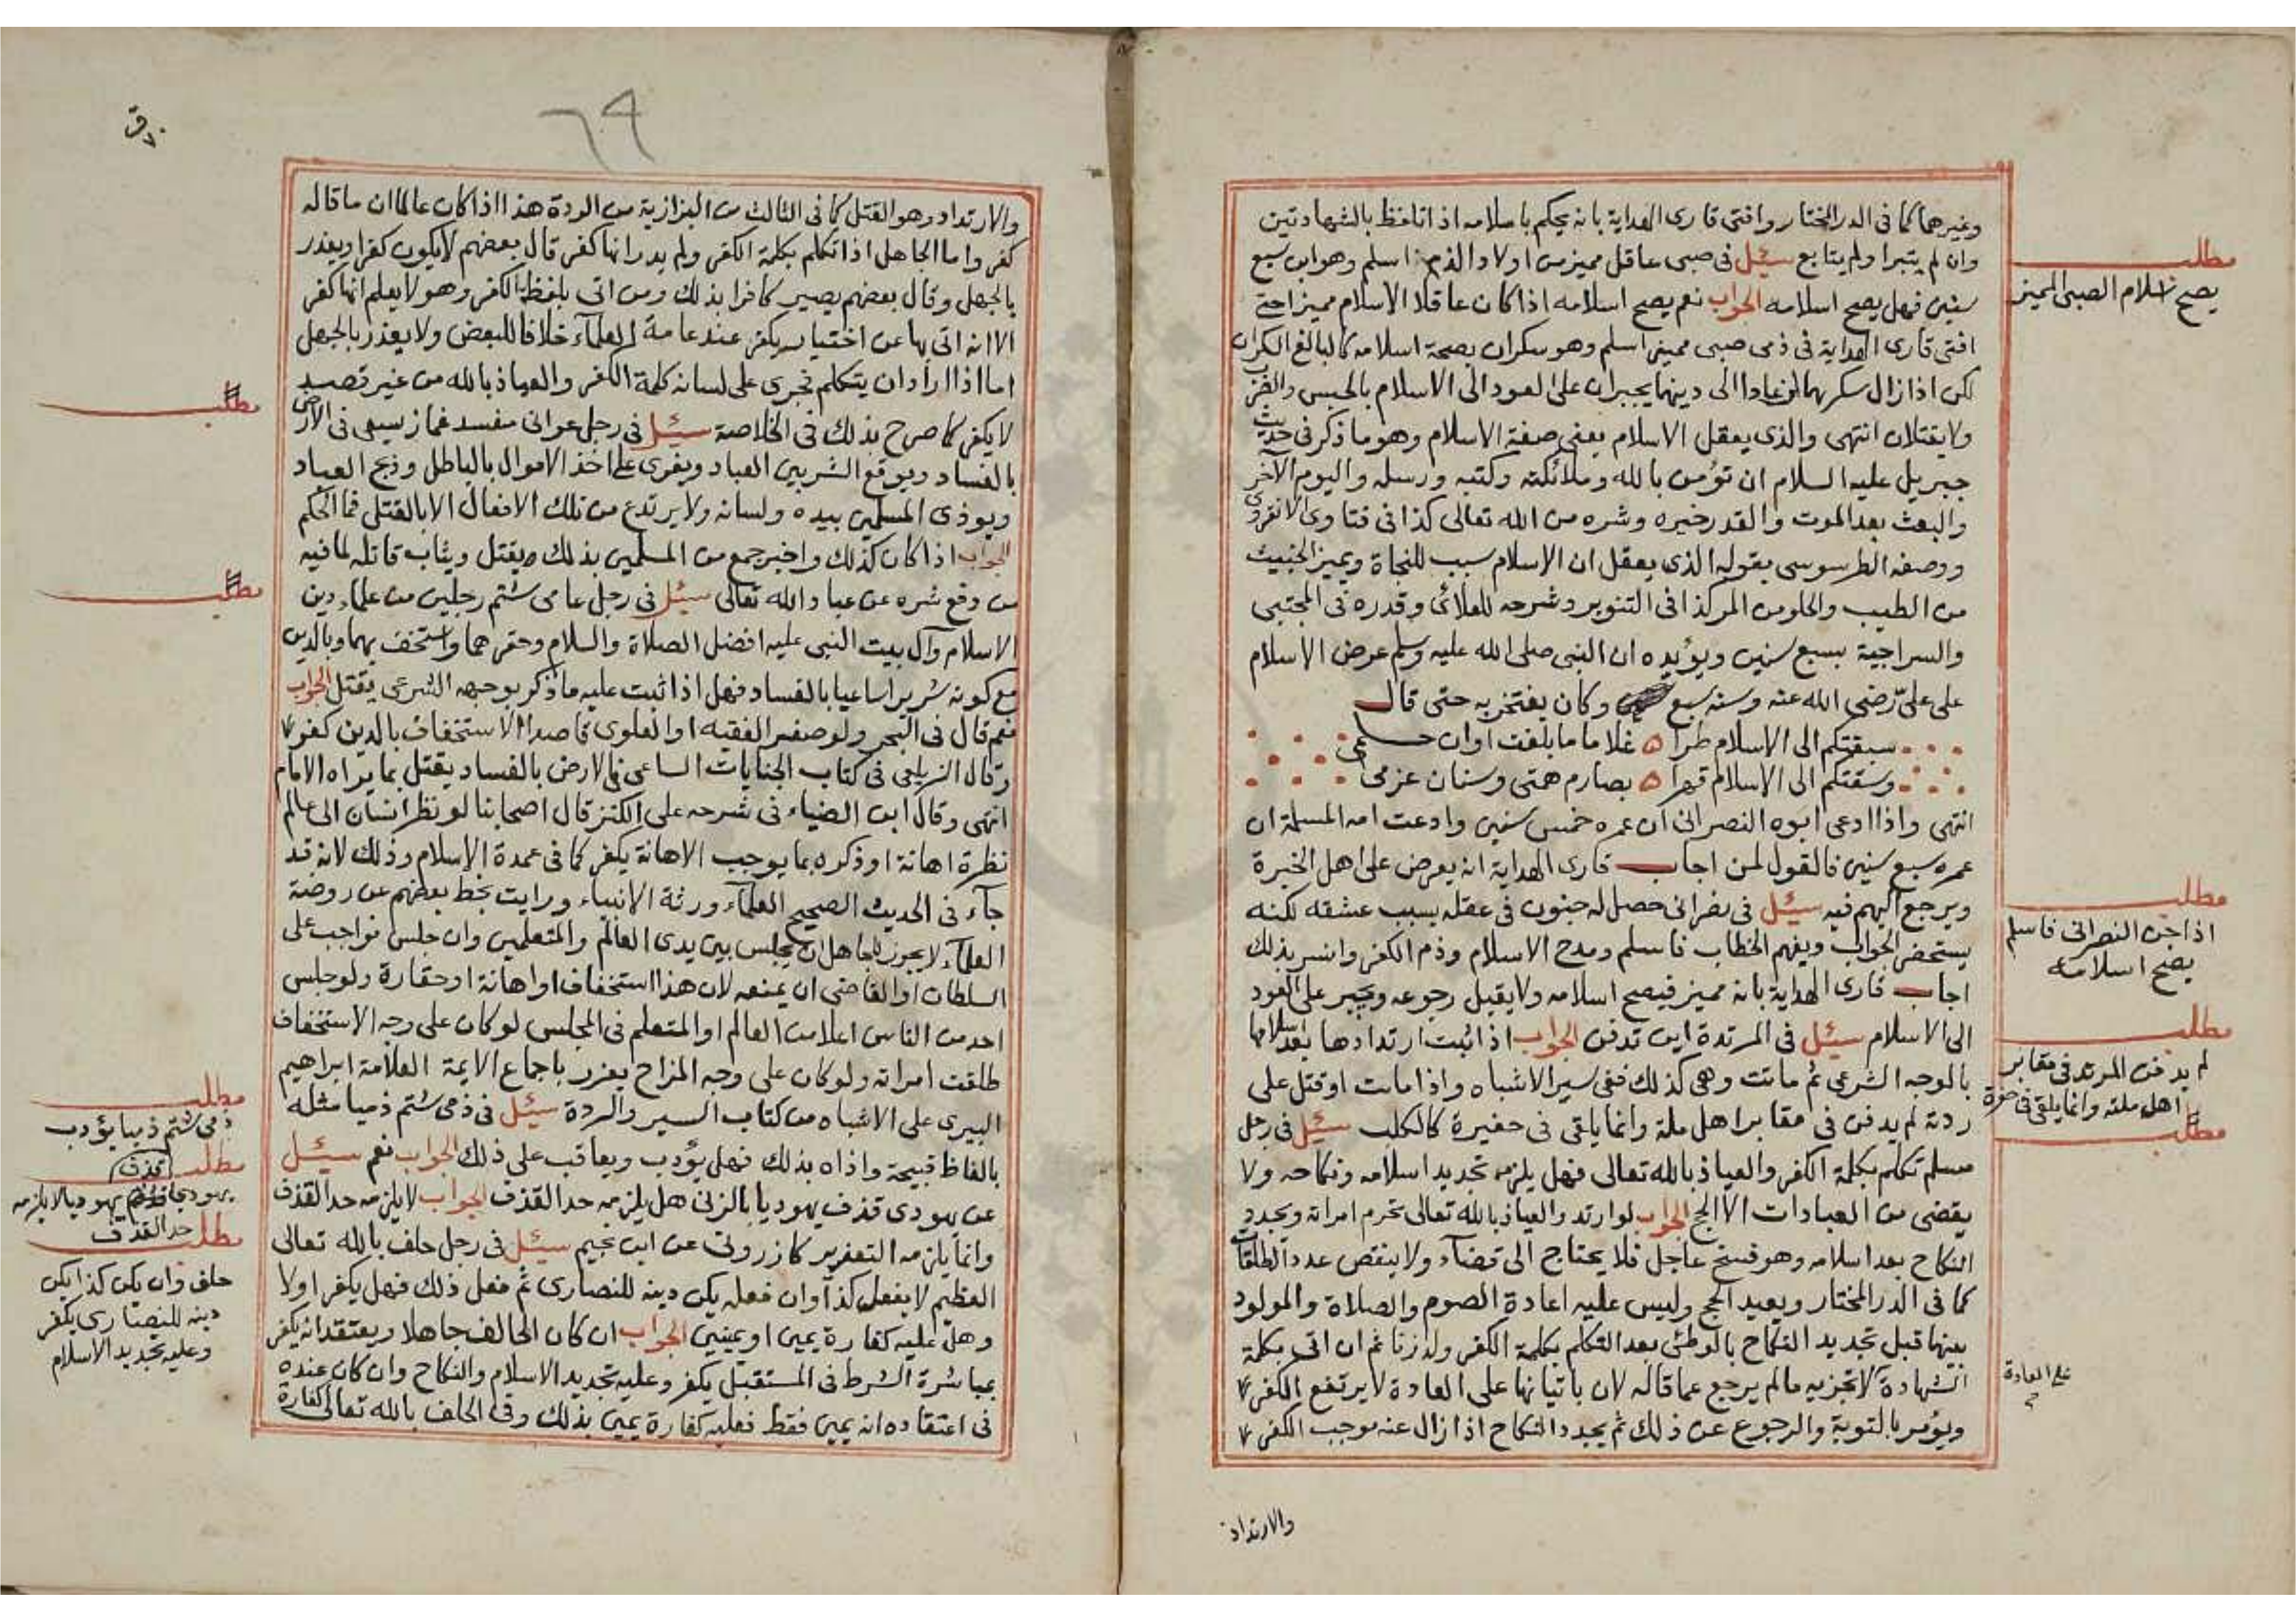 وغيرهما كما في الدر المختار وافتى قارى الهداية بانه يحكم باسلامه اذا تلفظ بالشهادتين
وان لم يتبرا ولم يتابع سئل في صبي عاقل مميز من اولاد الذمي اسلم وهو ابن سبع
سنين فهل يصح اسلامه الجواب نعم يصح اسلامه اذا كان عاقلا الاسلام مميزا حتى
افتى قارى الهداية في ذمى صبى مميز اسلم وهو سكران بصحة اسلامه كالبالغ السكران
لكن اذا زال سكرهما وعادا الى دينهما يجبران على العود الى الاسلام بالحبس والضرب
ولا يقتلان انتهى والذى يعقل الاسلام يعنى صفة الاسلام وهو ما ذكر في حديث
جبريل عليه السلام ان تؤمن بالله وملائكته وكتبه ورسله واليوم الآخر
والبعث بعد الموت والقدر خيره وشره من الله تعالى كذا في فتاوى الانقروى
ووصفه الطرسوسى بقوله الذى يعقل ان الاسلام سبب للنجاة ويميز الخبيث
من الطيب والحلو من المر كذا فى التنوير وشرحه للعلائى وقدره فى المجتبى
والسراجية بسبع سنين ويؤيده ان النبى صلى الله عليه وسلم عرض الاسلام
على علىّ رضى الله عنه وسنه سبع وكان يفتخر به حتى قال
سبقتكم الى الاسلام طرا غلاما ما بلغت اوان حلمى
وسقتكم الى الاسلام قهرا بصارم همتى وسنان عزمى
انتهى واذا ادعى ابوه النصرانى ان عمره خمس سنين وادعت امه المسلمة ان
عمره سبع سنين فالقول لمن اجاب قارى الهداية انه يعرض على اهل الخبرة
ويرجع اليهم فيه سئل فى نصرانى حصل له جنون فى عقله بسبب عشقه لكنه
يستحضر الجواب ويفهم الخطاب فاسلم ومدح الاسلام وذم الكفر وانسر بذلك
اجاب قارى الهداية بانه مميز فيصح اسلامه ولا يقبل رجوعه ويجبر على العود
الى الاسلام سئل فى المرتدة اين تدفن الجواب اذا ثبت ارتدادها بعد اسلامها
بالوجه الشرعى ثم ماتت وهى كذلك ففى سير الاشباه واذا مات او قتل على
ردته لم يدفن فى مقابر اهل ملة وانما يلقى فى حفيرة كالكلب سئل فى رجل
مسلم تكلم بكلمة الكفر والعياذ بالله تعالى فهل يلزمه تجديد اسلامه ونكاحه ولا
يقضى من العبادات الا الحج الجواب لو ارتد والعياذ بالله تعالى تحرم امراته ويجدد
النكاح بعد اسلامه وهو فسخ عاجل فلا يحتاج الى قضاء ولا ينقص عدد الطلقات
كما فى الدر المختار ويعيد الحج وليس عليه اعادة الصوم والصلاة والمولود
بينهما قبل تجديد النكاح بالوطئ بعد التكلم بكلمة الكفر ولد زنا ثم ان اتى بكلمة
الشهادة لا تجزيه ما لم يرجع عما قاله لان باتيانها على العادة لا يرتفع الكفر
ويؤمر بالتوبة والرجوع عن ذلك ثم يجدد النكاح اذا زال عنه موجب الكفر
والارتداد
مطلب
يصح اسلام الصبى المميز
مطلب
اذا جن النصرانى فاسلم
يصح اسلامه
مطلب
لم يدفن المرتد فى مقابر
اهل ملته وانما يلقى فى حفرة
مطلب
على العادة
٦٩
والارتداد وهو القتل كما فى الثالث من البزازية من الردة هذا اذا كان عالما ان ما قاله
كفر واما الجاهل اذا تكلم بكلمة الكفر ولم يدر انها كفر قال بعضهم لا يكون كفرا ويعذر
بالجهل وقال بعضهم يصير كافرا بذلك ومن اتى بلفظة الكفر وهو لا يعلم انها كفر
الا انه اتى بها عن اختيار يكفر عند عامة العلماء خلافا للبعض ولا يعذر بالجهل
اما اذا اراد ان يتكلم فجرى على لسانه كلمة الكفر والعياذ بالله من غير قصد
لا يكفر كما صرح بذلك فى الخلاصة سئل فى رجل عوانى مفسد غماز يسعى فى الارض
بالفساد ويوقع الشر بين العباد ويغرى على اخذ الاموال بالباطل وذبح العباد
ويوذى المسلمين بيده ولسانه ولا يرتدع من تلك الافعال الا بالقتل فما الحكم
الجواب اذا كان كذلك واخبر جمع من المسلمين بذلك يقتل ويثاب قاتله لما فيه
من دفع شره عن عباد الله تعالى سئل فى رجل عامى شتم رجلين من علماء دين
الاسلام وآل بيت النبى عليه افضل الصلاة والسلام وحقرهما واستخف بهما وبالدين
مع كونه شريرا ساعيا بالفساد فهل اذا ثبت عليه ما ذكر بوجهه الشرعى يقتل الجواب
نعم قال فى البحر ولو صغر الفقيه او العلوى قاصدا الاستخفاف بالدين كفر
وقال الزيلعى فى كتاب الجنايات الساعى فى الارض بالفساد يقتل بما يراه الامام
انتهى وقال ابن الضياء فى شرحه على الكنز قال اصحابنا لو نظر انسان الى عالم
نظرة اهانة او ذكره بما يوجب الاهانة يكفر كما فى عمدة الاسلام وذلك لانه قد
جآء فى الحديث الصحيح العلمآء ورثة الانبياء ورايت بخط بعضهم عن روضة
العلمآء لا يجوز للجاهل ان يجلس بين يدى العالم والمتعلمين وان جلس فواجب على
السلطان او القاضى ان يمنعه لان هذا استخفاف او اهانة او حقارة ولو جلس
احد من الناس اعلا من العالم او المتعلم فى المجلس لو كان على وجه الاستخفاف
طلقت امراته ولو كان على وجه المزاح يعزر باجماع الايمة العلامة ابراهيم
البيرى على الاشباه من كتاب السير والردة سئل فى ذمى شتم ذميا مثله
بالفاظ قبيحة واذاه بذلك فهل يؤدب ويعاقب على ذلك الجواب نعم سئل
عن يهودى قذف يهوديا بالزنى هل يلزمه حد القذف الجواب لا يلزمه حد القذف
وانما يلزمه التعزير كازرونى عن ابن نجيم سئل فى رجل حلف بالله تعالى
العظيم لا يفعل كذا وان فعله يكن دينه للنصارى ثم فعل ذلك فهل يكفر او لا
وهل عليه كفارة يمين او يمينين الجواب ان كان الحالف جاهلا ويعتقد انه يكفر
بمباشرة الشرط فى المستقبل يكفر وعليه تجديد الاسلام والنكاح وان كان عنده
فى اعتقاده انه يمين فقط فعليه كفارة يمين بذلك وفى الحلف بالله تعالى كفارة
مطلب
مطلب
مطلب
ذمى شتم ذميا يؤدب
مطلب
يهودى قذف يهوديا لا يلزمه
حد القذف
مطلب
حلف وان يكن كذا يكن
دينه للنصارى يكفر
وعليه تجديد الاسلام